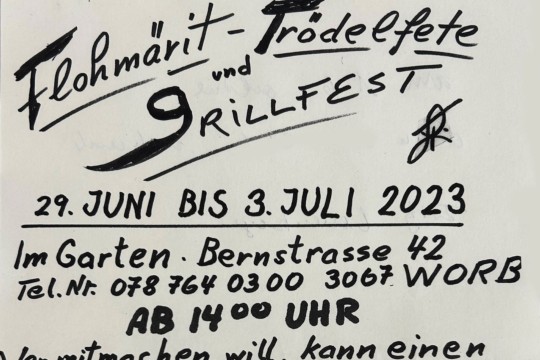 Flohmärit - Trödelfete
und
GRILLFEST
29. JUNI BIS 3. JULI 2023
Im Garten · Bernstrasse 42
Tel. Nr. 078 764 03 00 3067 WORB
AB 14 00 UHR
Wer mitmachen will, kann einen